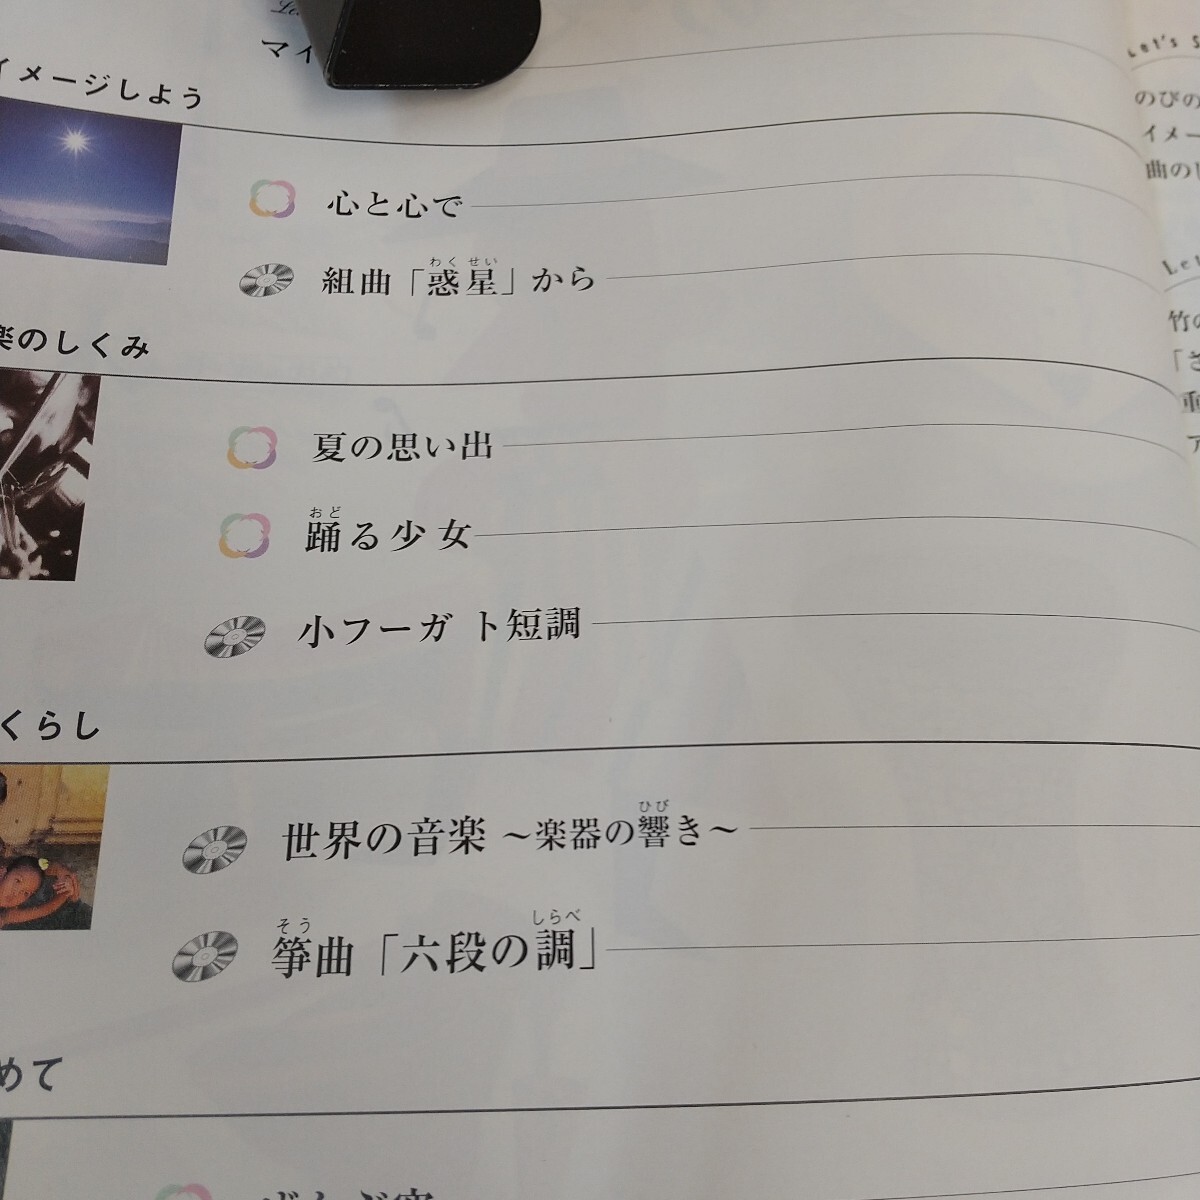 マイ
イメージしよう
心と心で
わくせい
組曲「惑星」から
楽のしくみ
夏の思い出
おど
踊る少女
小フーガ ト短調
くらし
ひび
世界の音楽 ～楽器の響き～
そう しらべ
箏曲「六段の調」
めて
Let's S
のびの
イメー
曲の
Let
竹の